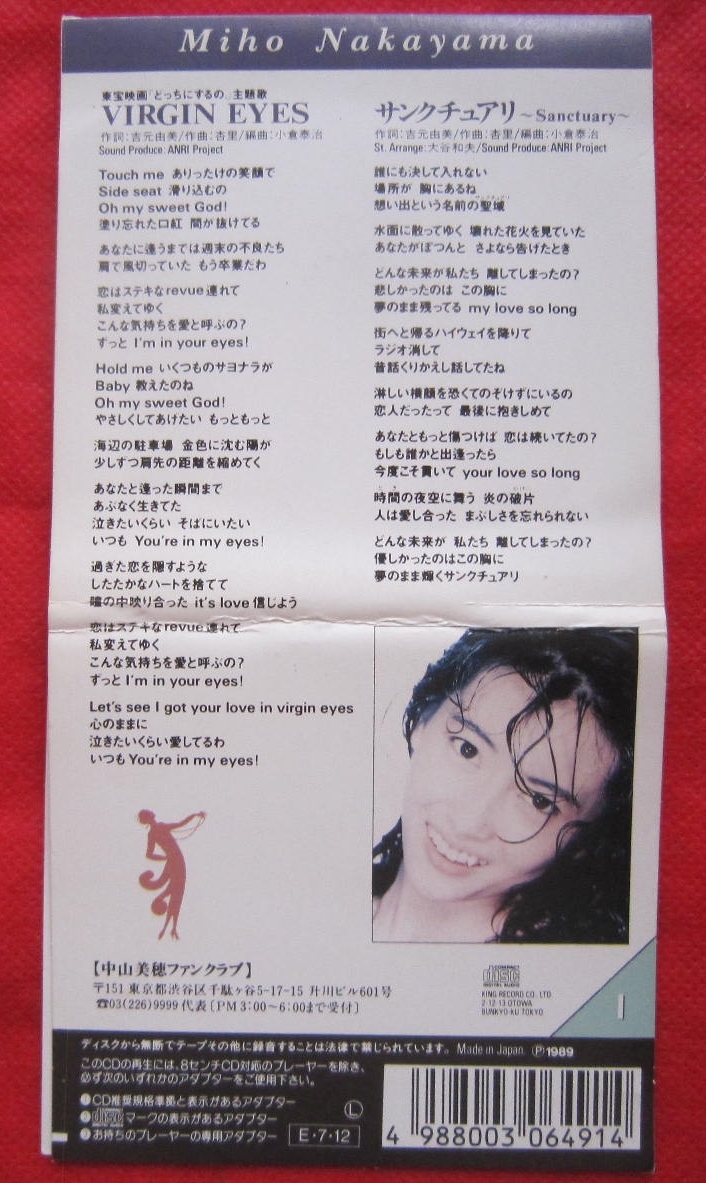 Miho Nakayama
東宝映画「どっちにするの。」主題歌
VIRGIN EYES
作詞:吉元由美/作曲:杏里/編曲:小倉泰治
Sound Produce: ANRI Project
Touch me ありったけの笑顔で
Side seat 滑り込むの
Oh my sweet God!
塗り忘れた口紅 間が抜けてる
あなたに逢うまでは週末の不良たち
肩で風切っていた もう卒業だわ
恋はステキなrevue連れて
私変えてゆく
こんな気持ちを愛と呼ぶの?
ずっと I'm in your eyes!
Hold me いくつものサヨナラが
Baby 教えたのね
Oh my sweet God!
やさしくしてあげたい もっともっと
海辺の駐車場 金色に沈む陽が
少しずつ肩先の距離を縮めてく
あなたと逢った瞬間まで
あぶなく生きてた
泣きたいくらい そばにいたい
いつも You're in my eyes!
過ぎた恋を隠すような
したたかなハートを捨てて
瞳の中映り合った it's love 信じよう
恋はステキなrevue連れて
私変えてゆく
こんな気持ちを愛と呼ぶの?
ずっと I'm in your eyes!
Let's see I got your love in virgin eyes
心のままに
泣きたいくらい愛してるわ
いつもYou're in my eyes!
サンクチュアリ ~Sanctuary~
作詞:吉元由美/作曲:杏里/編曲:小倉泰治
St. Arrange:大谷和夫/Sound Produce: ANRI Project
誰にも決して入れない
場所が 胸にあるね
想い出という名前の聖域
水面に散ってゆく 壊れた花火を見ていた
あなたがぽつんと さよなら告げたとき
どんな未来が私たち 離してしまったの?
悲しかったのは この胸に
夢のまま残ってる my love so long
街へと帰るハイウェイを降りて
ラジオ消して
昔話くりかえし話してたね
淋しい横顔を恐くてのぞけずにいるの
恋人だったって 最後に抱きしめて
あなたともっと傷つけば 恋は続いてたの?
もしも誰かと出逢ったら
今度こそ貫いて your love so long
時間の夜空に舞う 炎の破片
人は愛し合った まぶしさを忘れられない
どんな未来が 私たち 離してしまったの?
優しかったのはこの胸に
夢のまま輝くサンクチュアリ
【中山美穂ファンクラブ】
〒151 東京都渋谷区千駄ヶ谷5-17-15 升川ビル601号
☎03(226)9999 代表〔PM 3:00~6:00まで受付〕
COMPACT
disc
DIGITAL AUDIO
KING RECORD CO., LTD.
2-12-13 OTOWA
BUNKYO-KU TOKYO
ディスクから無断でテープその他に録音することは法律で禁じられています。 Made in Japan. Ⓟ1989
このCDの再生には、8センチCD対応のプレーヤーを除き、
必ず次のいずれかのアダプターをご使用下さい。
❶CD推奨規格準拠と表示があるアダプター
❷disc マークの表示があるアダプター
❸お持ちのプレーヤーの専用アダプター
Ⓛ
E・7・12
4 988003 064914